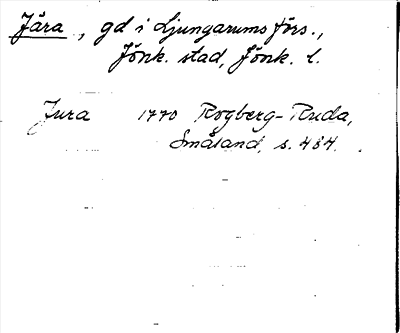 Jära, gd i Ljungarums förs.,
Jönk. stad, Jönk. l.
Jura 1770 Rogberg-Ruda,
Småland, s. 484.